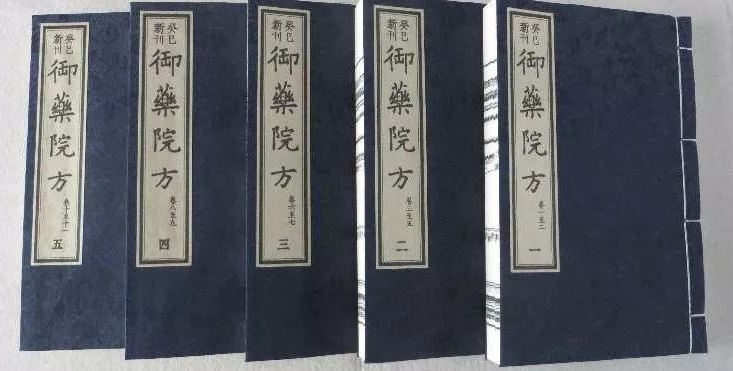 癸巳
新刊
御藥院方
卷一至二
一
癸巳
新刊
御藥院方
卷三至五
二
癸巳
新刊
御藥院方
卷六至七
三
癸巳
新刊
御藥院方
卷八至九
四
癸巳
新刊
御藥院方
卷十至十一
五